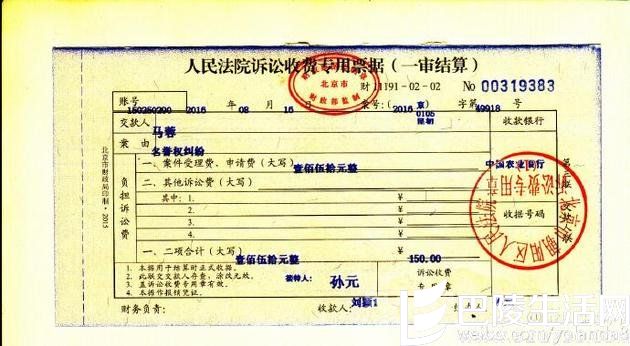 人民法院诉讼收费专用票据（一审结算）
北京市
财政部监制
财 1191-02-02 No 00319383
账号 150250200 2016 年 08 月 16 日 案号：（2016）京0105民初 字第49918号
交款人 马蓉 收款银行
案由 名誉权纠纷
负担诉讼费
一、案件受理费、申请费（大写） 壹佰伍拾元整 中国农业银行
二、其他诉讼费（大写）
其中：1. ¥
2. ¥
3. ¥
4. ¥
收据号码
一、二项合计（大写） 壹佰伍拾元整 ¥ 150.00
1. 本据用于结算时正式收据。
2. 此联交交款人存查，涂改无效。
3. 盖诉讼收费专用章有效。
4. 本据作报销凭证。
接待人： 孙元
诉讼收费
专用章
财务负责： 收款人： 刘颖1
北京市财政局印制·2015
北京市朝阳区人民法院
诉讼费专用章
巴陵生活网
weibo.com/yolandaj